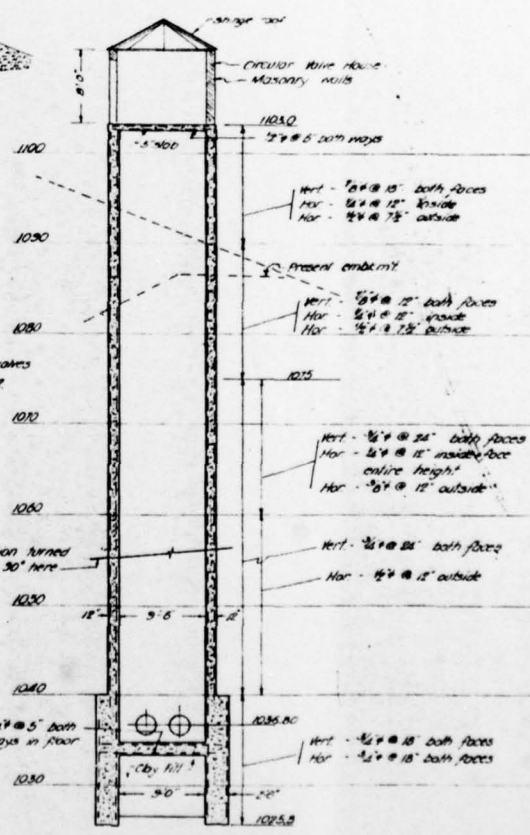 Shingle roof
8'0"
Circular Valve House
Masonry walls
1103.0
5" slab
1/2"φ @ 6" both ways
1100
Vert - 7/8"φ @ 18" both faces
Hor - 3/4"φ @ 12" inside
Hor - 1/2"φ @ 7 1/2" outside
1090
Present embkm't.
Vert. @ 12" both faces
Hor @ 12" inside
Hor - 1/2"φ @ 7 1/2" outside
1080
1075
1070
Vert - 3/4"φ @ 24" both faces
Hor @ 12" inside face
entire height
Hor - 3/8"φ @ 12" outside
1060
on turned
90° here
Vert. - 3/4"φ @ 24" both faces
Hor - 1/2"φ @ 12" outside
1050
12" 9'-6" 12"
1040
1036.80
@ 5" both
ways in floor
Vert - 3/4"φ @ 18" both faces
Hor - 3/4"φ @ 18" both faces
Clay fill
1030
9'0" 2'0"
1025.5